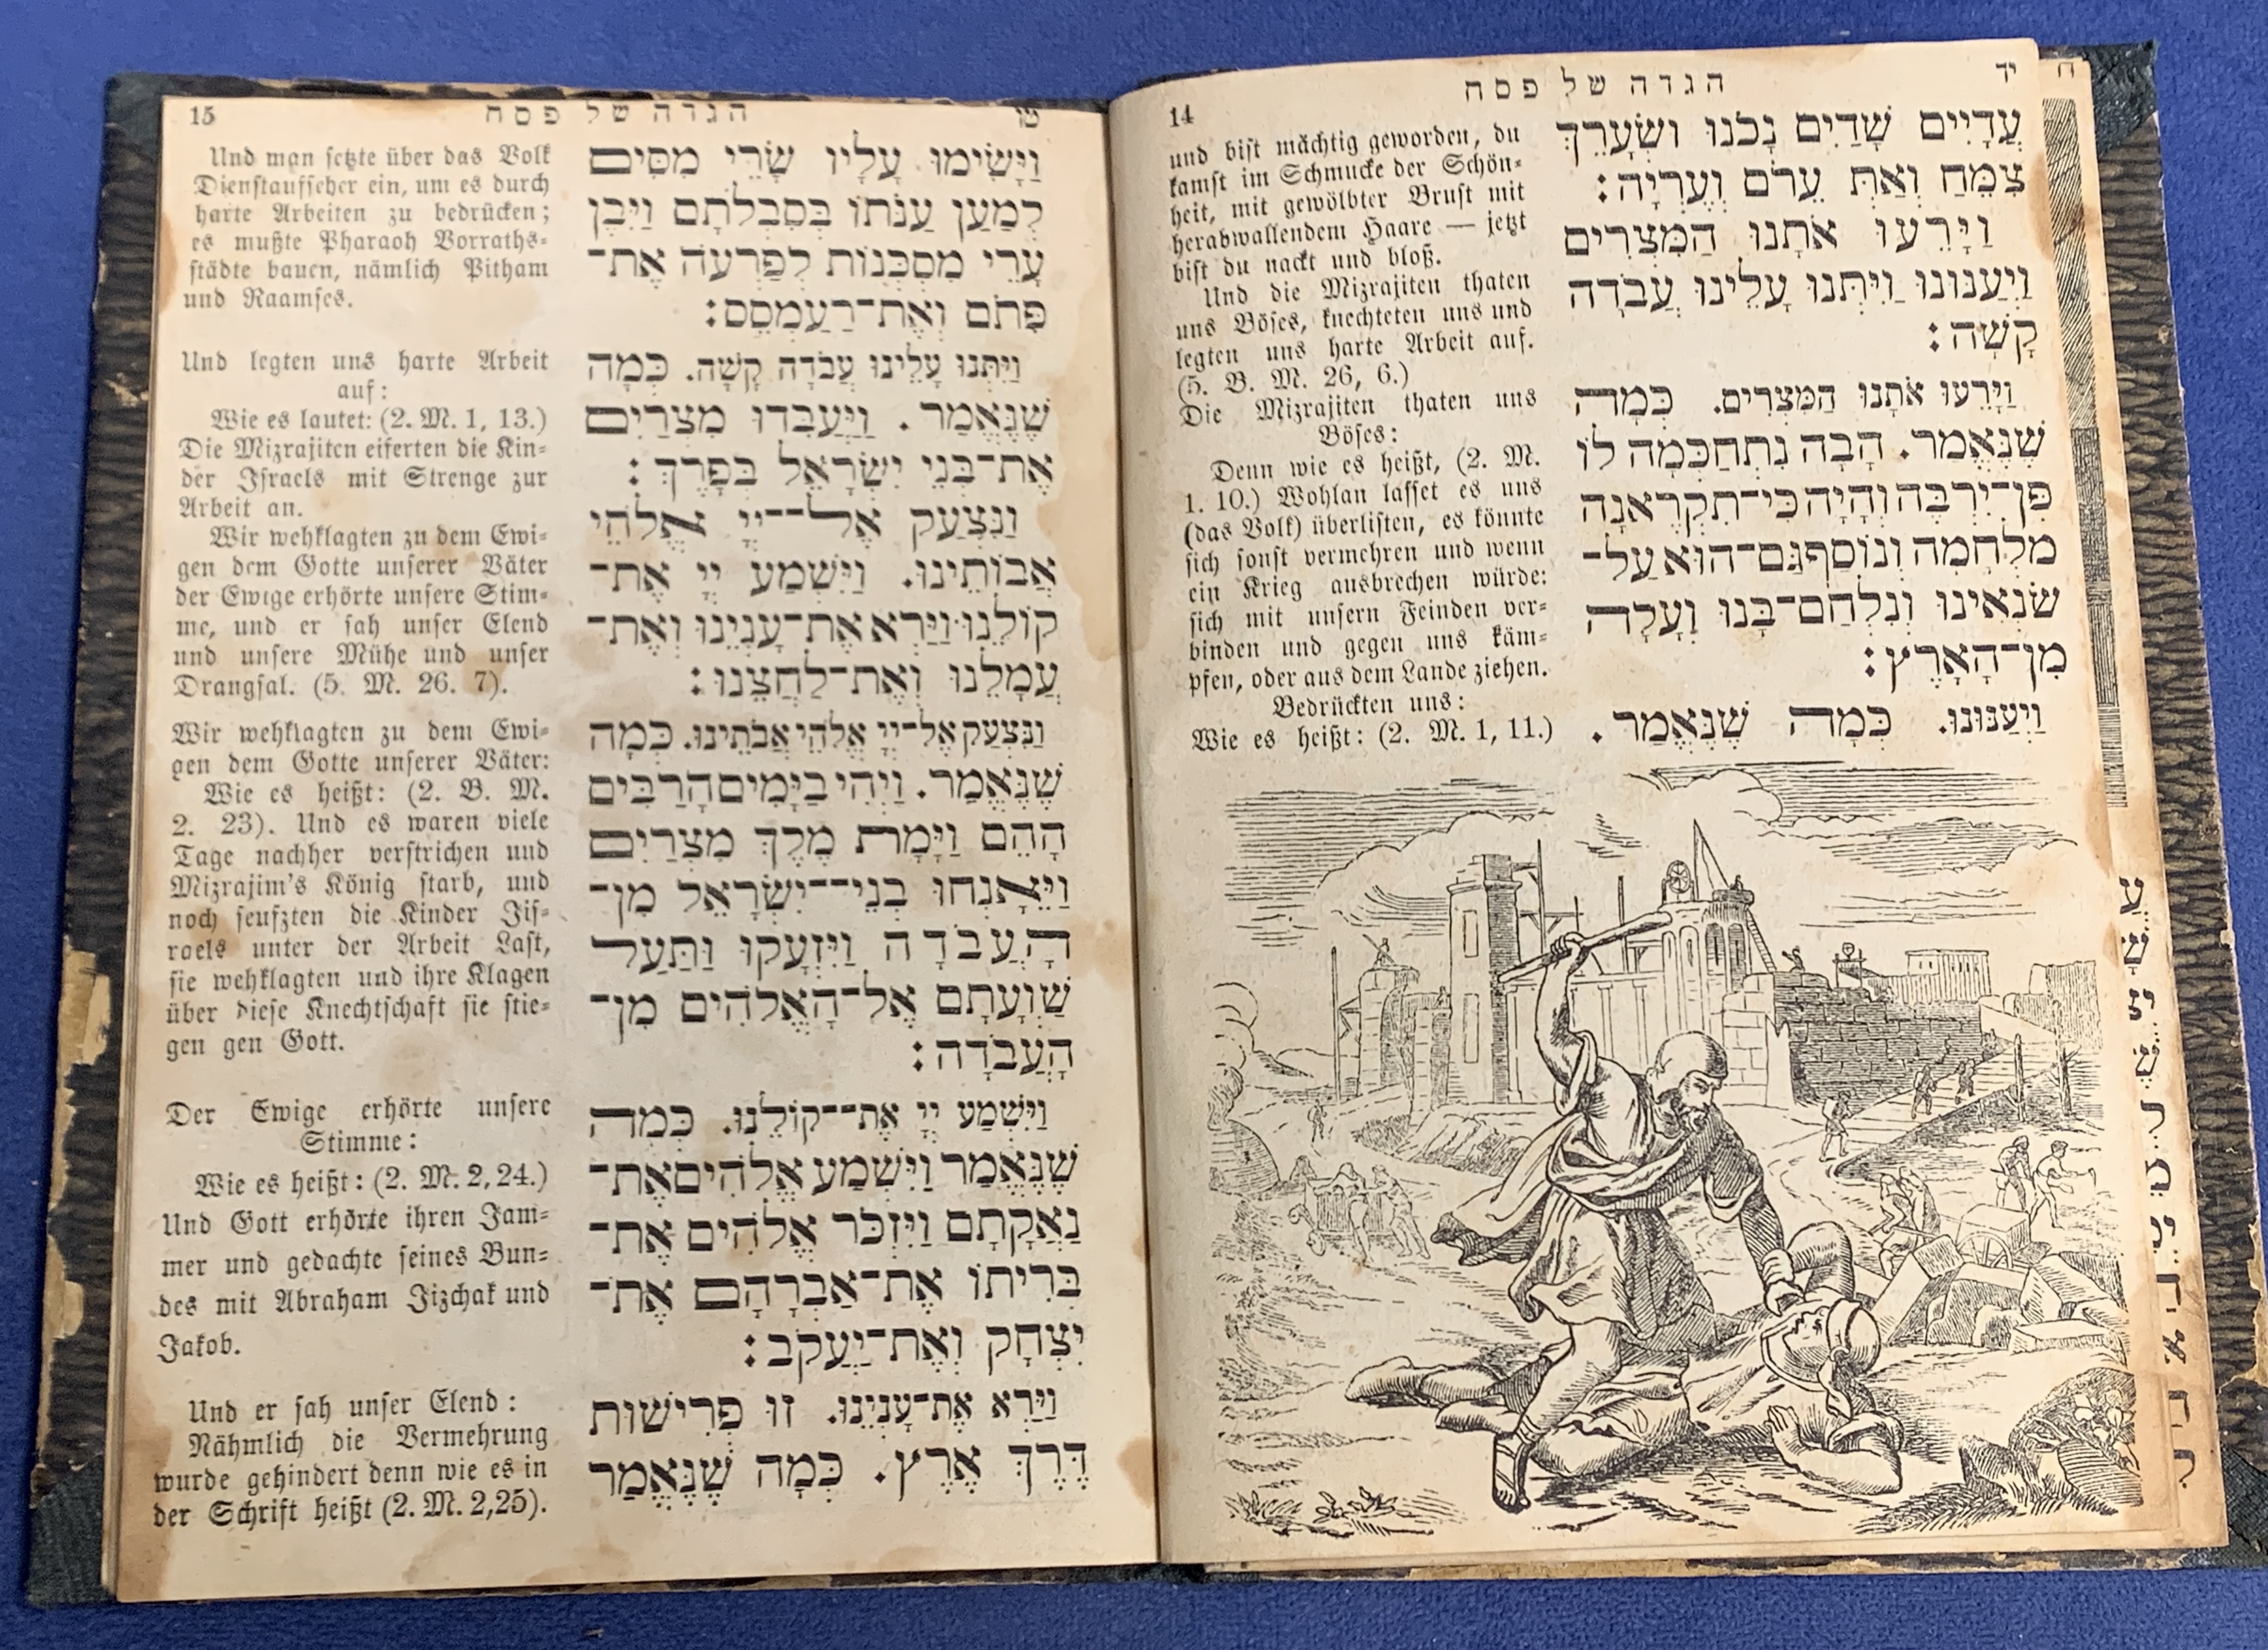 הגדה של פסח
יד
14
עֲדָיִים שָׁדַיִם נָכֹנוּ וּשְׂעָרֵךְ
צִמֵּחַ וְאַתְּ עֵרֹם וְעֶרְיָה:
וַיָּרֵעוּ אֹתָנוּ הַמִּצְרִים
וַיְעַנּוּנוּ וַיִּתְּנוּ עָלֵינוּ עֲבֹדָה
קָשָׁה:
וַיָּרֵעוּ אֹתָנוּ הַמִּצְרִים. כְּמָה
שֶׁנֶּאֱמַר. הָבָה נִתְחַכְּמָה לוֹ
פֶּן־יִרְבֶּה וְהָיָה כִּי־תִקְרֶאנָה
מִלְחָמָה וְנוֹסַף גַּם־הוּא עַל־
שׂנְאֵינוּ וְנִלְחַם־בָּנוּ וְעָלָה
מִן־הָאָרֶץ:
וַיְעַנּוּנוּ. כְּמָה שֶׁנֶּאֱמַר.
und bist mächtig geworden, du
kamst im Schmucke der Schön-
heit, mit gewölbter Brust mit
herabwallendem Haare — jetzt
bist du nackt und bloß.
Und die Mizrajiten thaten
uns Böses, knechteten uns und
legten uns harte Arbeit auf.
(5. B. M. 26, 6.)
Die Mizrajiten thaten uns
Böses:
Denn wie es heißt, (2. M.
1. 10.) Wohlan lasset es uns
(das Volk) überlisten, es könnte
sich sonst vermehren und wenn
ein Krieg ausbrechen würde:
sich mit unsern Feinden ver-
binden und gegen uns käm-
pfen, oder aus dem Lande ziehen.
Bedrückten uns:
Wie es heißt: (2. M. 1, 11.)
הגדה של פסח
טו
15
וַיָּשִׂימוּ עָלָיו שָׂרֵי מִסִּים
לְמַעַן עַנֹּתוֹ בְּסִבְלֹתָם וַיִּבֶן
עָרֵי מִסְכְּנוֹת לְפַרְעֹה אֶת־
פִּתֹם וְאֶת־רַעַמְסֵס:
וַיִּתְּנוּ עָלֵינוּ עֲבֹדָה קָשָׁה. כְּמָה
שֶׁנֶּאֱמַר. וַיַּעֲבִדוּ מִצְרַיִם
אֶת־בְּנֵי יִשְׂרָאֵל בְּפָרֶךְ:
וַנִּצְעַק אֶל־יְיָ אֱלֹהֵי
אֲבוֹתֵינוּ. וַיִּשְׁמַע יְיָ אֶת־
קוֹלֵנוּ וַיַּרְא אֶת־עָנְיֵנוּ וְאֶת־
עֲמָלֵנוּ וְאֶת־לַחֲצֵנוּ:
וַנִּצְעַק אֶל־יְיָ אֱלֹהֵי אֲבֹתֵינוּ. כְּמָה
שֶׁנֶּאֱמַר. וַיְהִי בַיָּמִים הָרַבִּים
הָהֵם וַיָּמָת מֶלֶךְ מִצְרַיִם
וַיֵּאָנְחוּ בְנֵי־יִשְׂרָאֵל מִן־
הָעֲבֹדָה וַיִּזְעָקוּ וַתַּעַל
שַׁוְעָתָם אֶל־הָאֱלֹהִים מִן־
הָעֲבֹדָה:
וַיִּשְׁמַע יְיָ אֶת־קוֹלֵנוּ. כְּמָה
שֶׁנֶּאֱמַר וַיִּשְׁמַע אֱלֹהִים אֶת־
נַאֲקָתָם וַיִּזְכֹּר אֱלֹהִים אֶת־
בְּרִיתוֹ אֶת־אַבְרָהָם אֶת־
יִצְחָק וְאֶת־יַעֲקֹב:
וַיַּרְא אֶת־עָנְיֵנוּ. זוּ פְּרִישׁוּת
דֶּרֶךְ אֶרֶץ. כְּמָה שֶׁנֶּאֱמַר
Und man setzte über das Volk
Dienstaufseher ein, um es durch
harte Arbeiten zu bedrücken;
es mußte Pharaoh Vorraths-
städte bauen, nämlich Pitham
und Raamses.
Und legten uns harte Arbeit
auf:
Wie es lautet: (2. M. 1, 13.)
Die Mizrajiten eiferten die Kin-
der Israels mit Strenge zur
Arbeit an.
Wir wehklagten zu dem Ewi-
gen dem Gotte unserer Väter
der Ewige erhörte unsere Stim-
me, und er sah unser Elend
und unsere Mühe und unser
Drangsal. (5. M. 26. 7).
Wir wehklagten zu dem Ewi-
gen dem Gotte unserer Väter:
Wie es heißt: (2. B. M.
2. 23). Und es waren viele
Tage nachher verstrichen und
Mizrajim's König starb, und
noch seufzten die Kinder Jis-
raels unter der Arbeit Last,
sie wehklagten und ihre Klagen
über diese Knechtschaft sie stie-
gen gen Gott.
Der Ewige erhörte unsere
Stimme:
Wie es heißt: (2. M. 2, 24.)
Und Gott erhörte ihren Jam-
mer und gedachte seines Bun-
des mit Abraham Jizchak und
Jakob.
Und er sah unser Elend:
Nähmlich die Vermehrung
wurde gehindert denn wie es in
der Schrift heißt (2. M. 2,25).